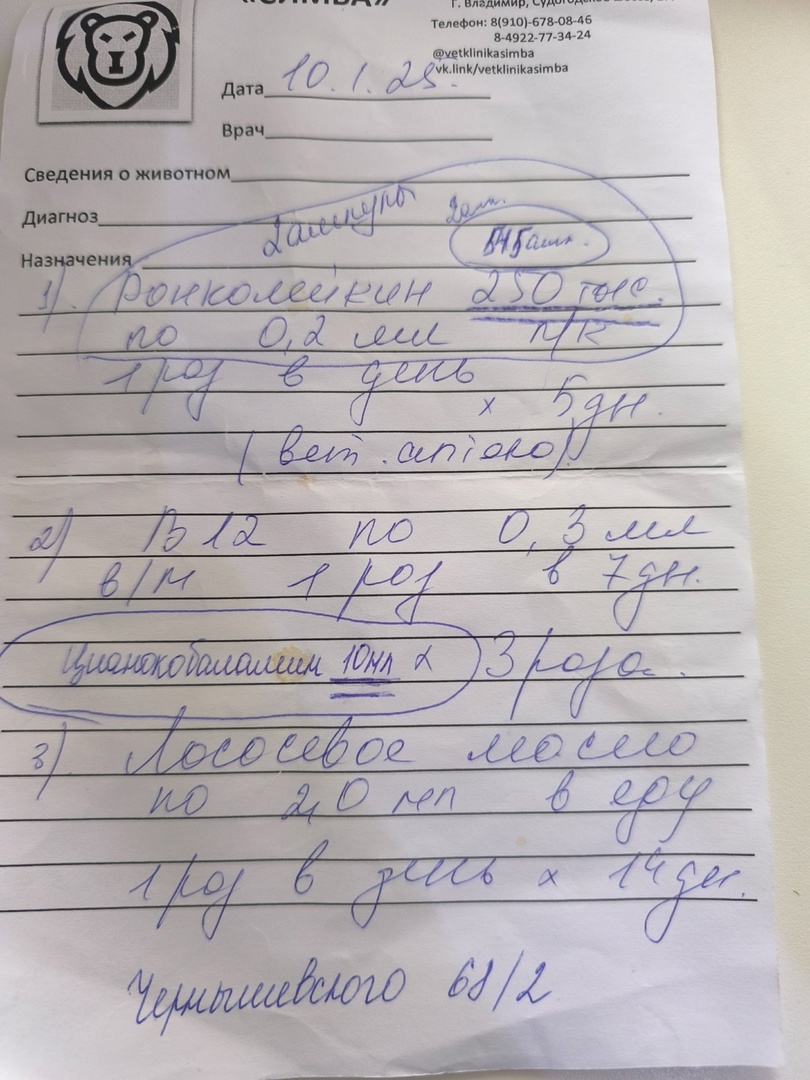 «СИМБА»
г. Владимир, Судогодское шоссе,
Телефон: 8(910)-678-08-46
8-4922-77-34-24
@vetklinikasimba
vk.link/vetklinikasimba
Дата 10.1.25.
Врач
Сведения о животном
Диагноз
2 ампулы 2 амп.
Назначения
1). Ронколейкин 250 тыс.
по 0,2 мл п/к
1 раз в день
х 5 дн.
(вет. аптека)
2) В12 по 0,3 мл
в/м 1 раз в 7 дн.
Цианокобаламин 10мл х 3 раза.
3) Лососевое масло
по 2,0 мл в еду
1 раз в день х 14 дн.
Чернышевского 68/2